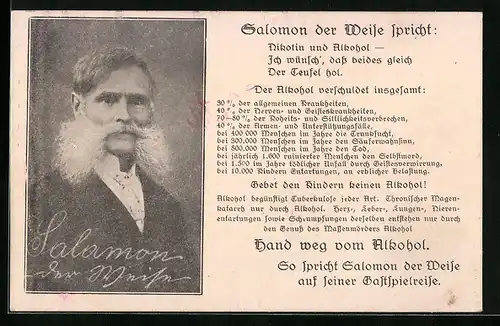 Salomon der Weise spricht:
Nikotin und Alkohol —
Ich wünsch', daß beides gleich
Der Teufel hol.
Der Alkohol verschuldet insgesamt:
30 % der allgemeinen Krankheiten,
40 % der Nerven- und Geisteskrankheiten,
70—80 % der Roheits- und Sittlichkeitsverbrechen,
40 % der Armen- und Unterstützungsfälle,
bei 400 000 Menschen im Jahre die Trunksucht,
bei 300.000 Menschen im Jahre den Säuferwahnsinn,
bei 500.000 Menschen im Jahre den Tod,
bei jährlich 1.600 ruinierter Menschen den Selbstmord,
bei 1.500 im Jahre tödlicher Unfall durch Geistesverwirrung,
bei 10.000 Kindern Entartungen, an erblicher Belastung.
Gebet den Kindern keinen Alkohol!
Alkohol begünstigt Tuberkulose jeder Art. Chronischer Magen-
katarrh nur durch Alkohol. Herz-, Leber-, Lungen-, Nieren-
entartungen sowie Schrumpfungen derselben entstehen nur durch
den Genuß des Massenmörders Alkohol
Hand weg vom Alkohol.
So spricht Salomon der Weise
auf seiner Gastspielreise.
Salamon
der Weise